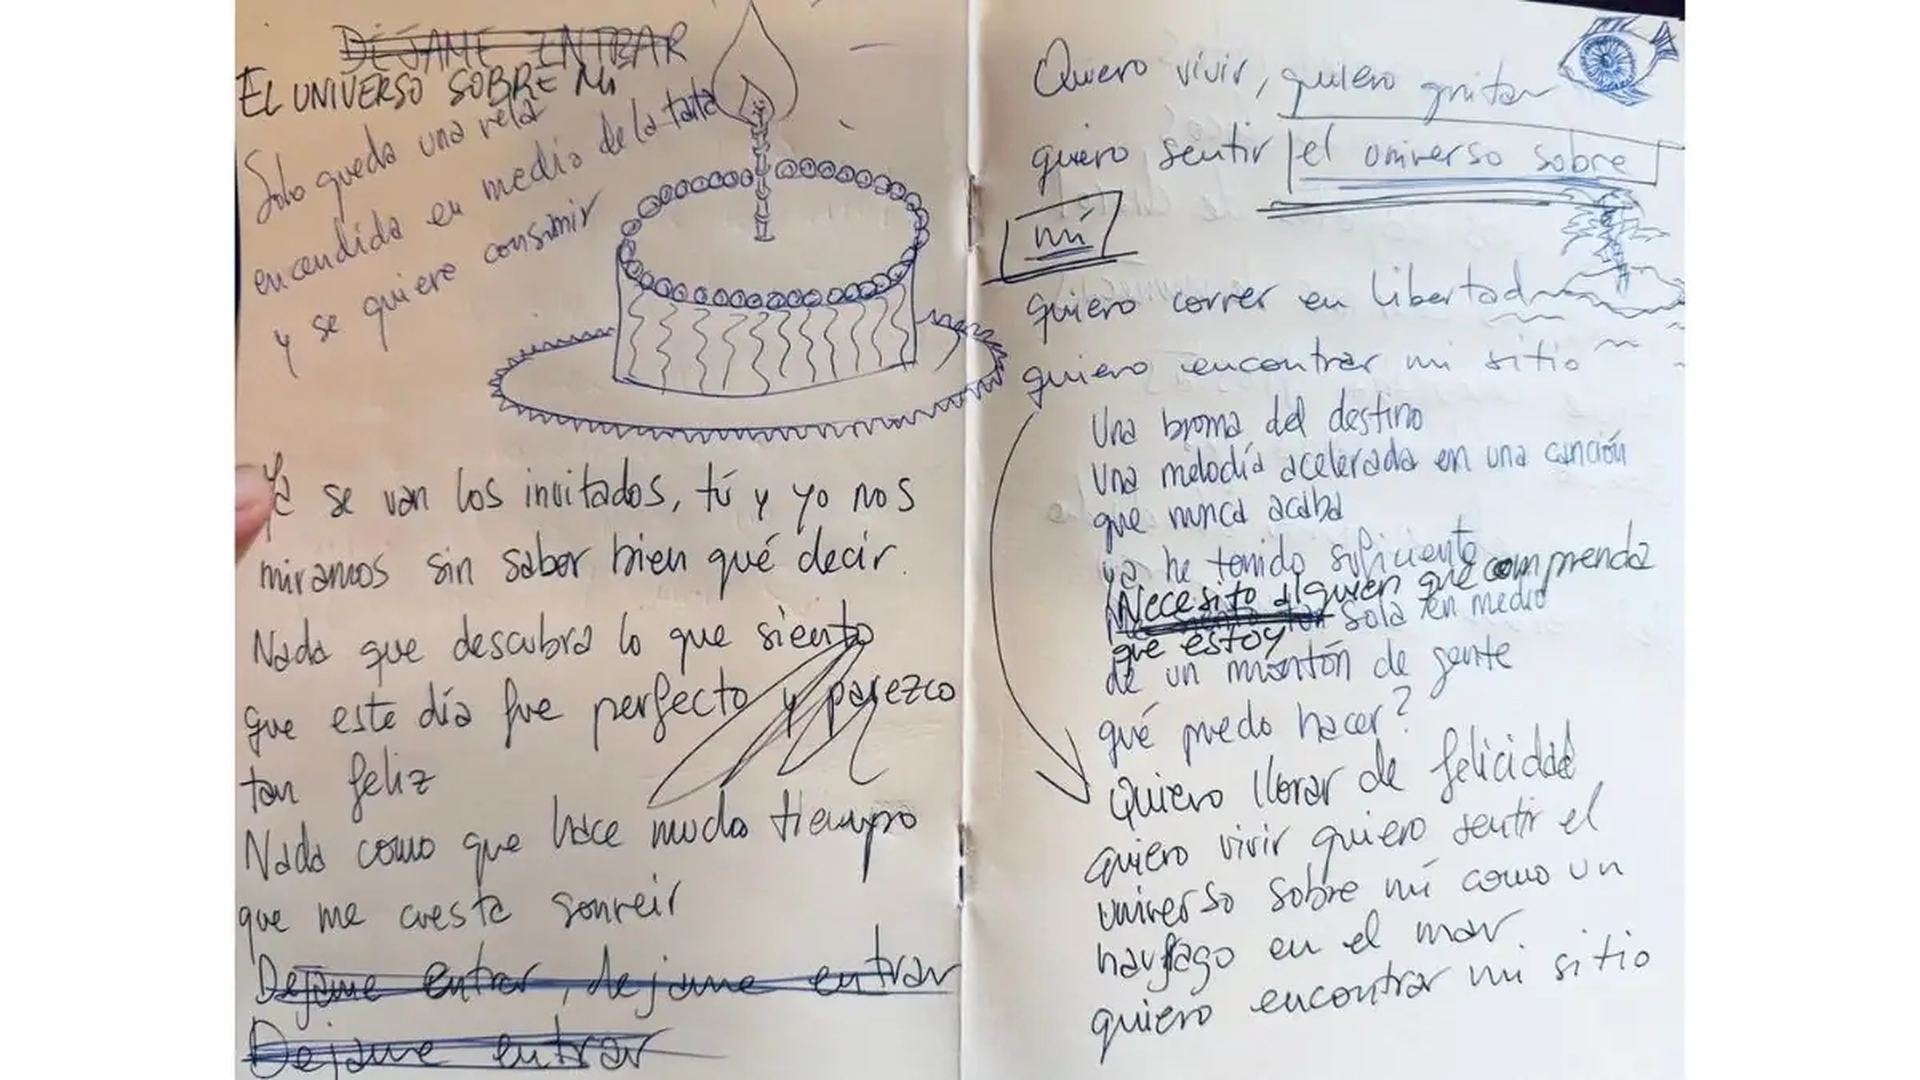 DEJAME ENTRAR
EL UNIVERSO SOBRE MI
Solo queda una vela
encendida en medio de la tarta
y se quiere consumir
Ya se van los invitados, tú y yo nos
miramos sin saber bien qué decir.
Nada que descubra lo que siento
que este día fue perfecto y parezco
tan feliz
Nada como que hace mucho tiempo
que me cuesta sonreir
Dejame entrar, dejame entrar
Dejame entrar
Quiero vivir, quiero gritar
quiero sentir el universo sobre
mí
quiero correr en libertad
quiero encontrar mi sitio
Una broma del destino
Una melodía acelerada en una canción
que nunca acaba
ya he tenido suficiente
Necesito alguien que comprenda
que estoy sola en medio
de un montón de gente
qué puedo hacer?
Quiero llorar de felicidad
quiero vivir quiero sentir el
universo sobre mí como un
naufrago en el mar
quiero encontrar mi sitio